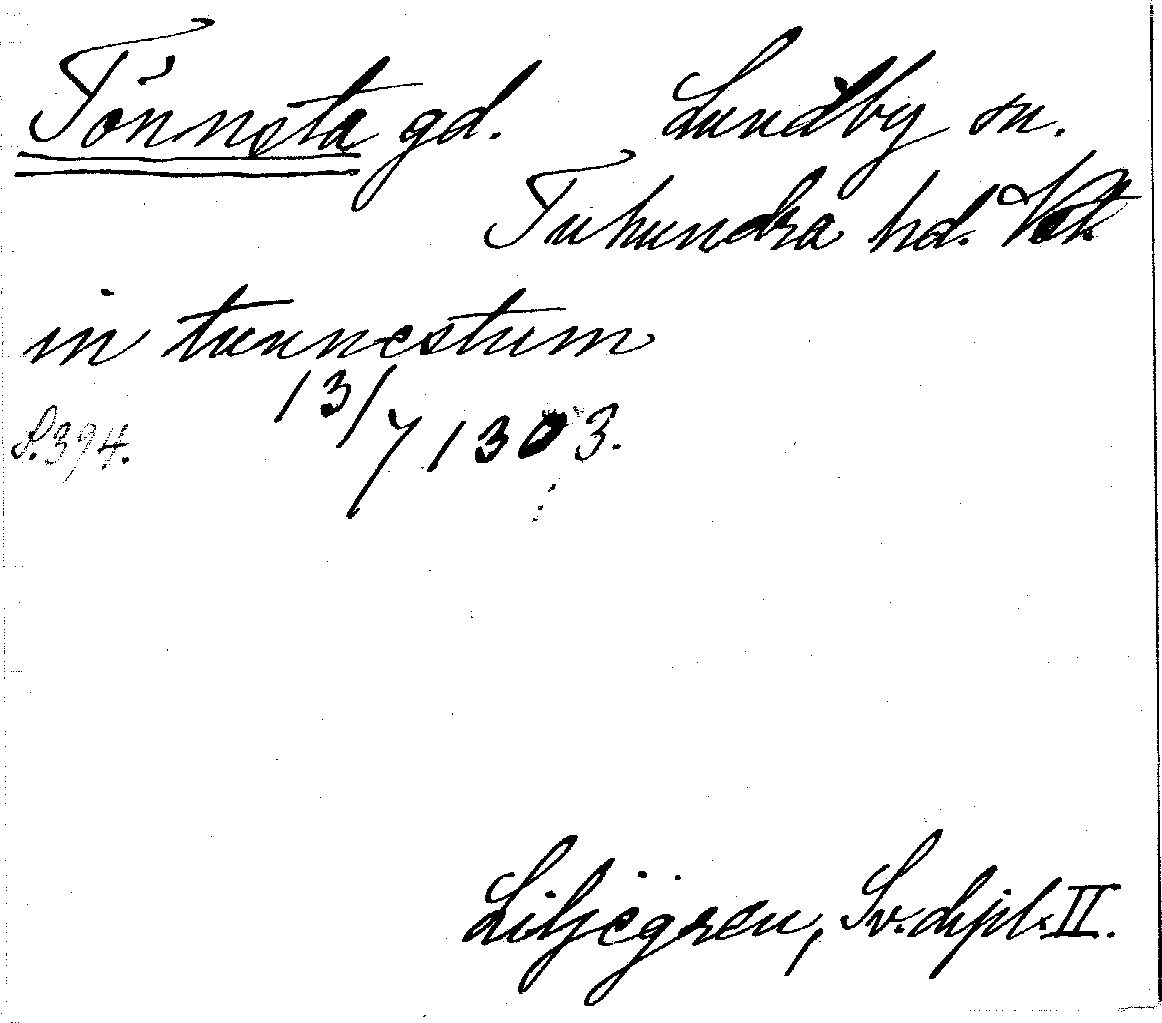 Tönnsta gd. Lundby sn.
Tuhundra hd. Vstm.
in tunnestum
13/7 1303.
S. 394.
Liljegren, Sv. dipl. II.